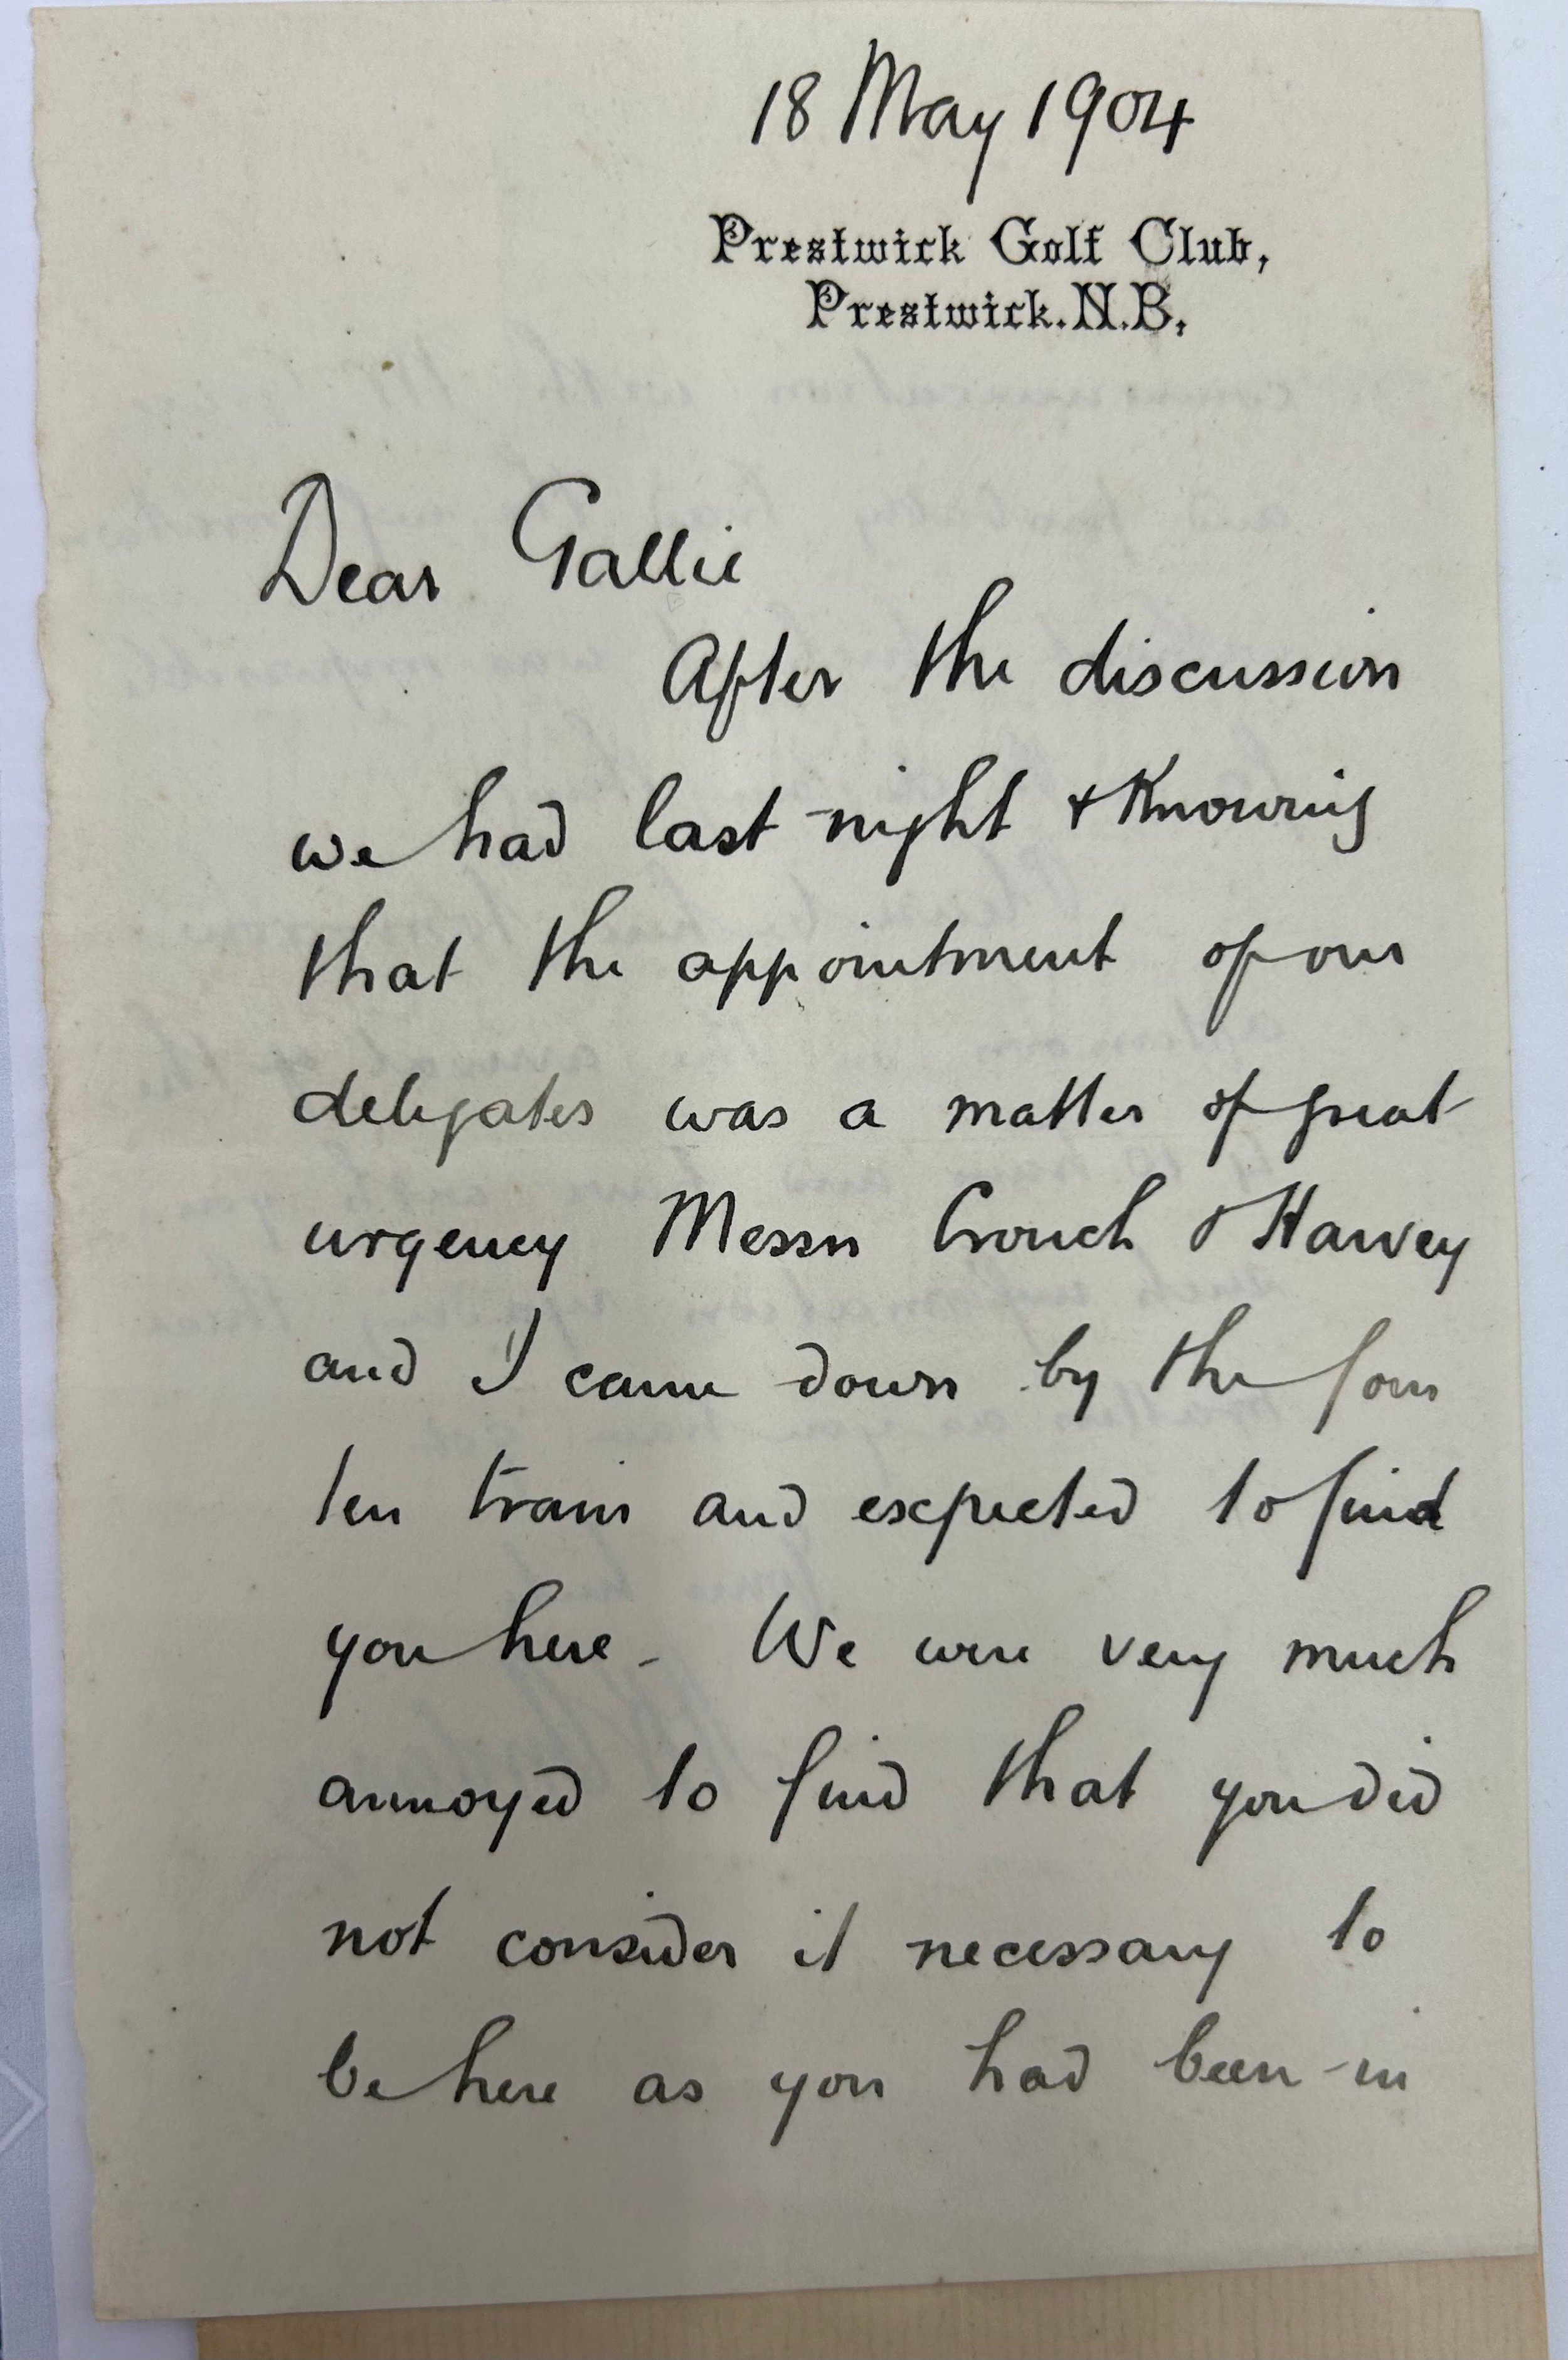 18 May 1904
Prestwick Golf Club,
Prestwick. N.B.
Dear Gallie
After the discussion
we had last night & Knowing
that the appointment of our
delegates was a matter of great
urgency Messrs Crouch & Harvey
and I came down by the four
ten train and expected to find
you here - We were very much
annoyed to find that you did
not consider it necessary to
be here as you had been in